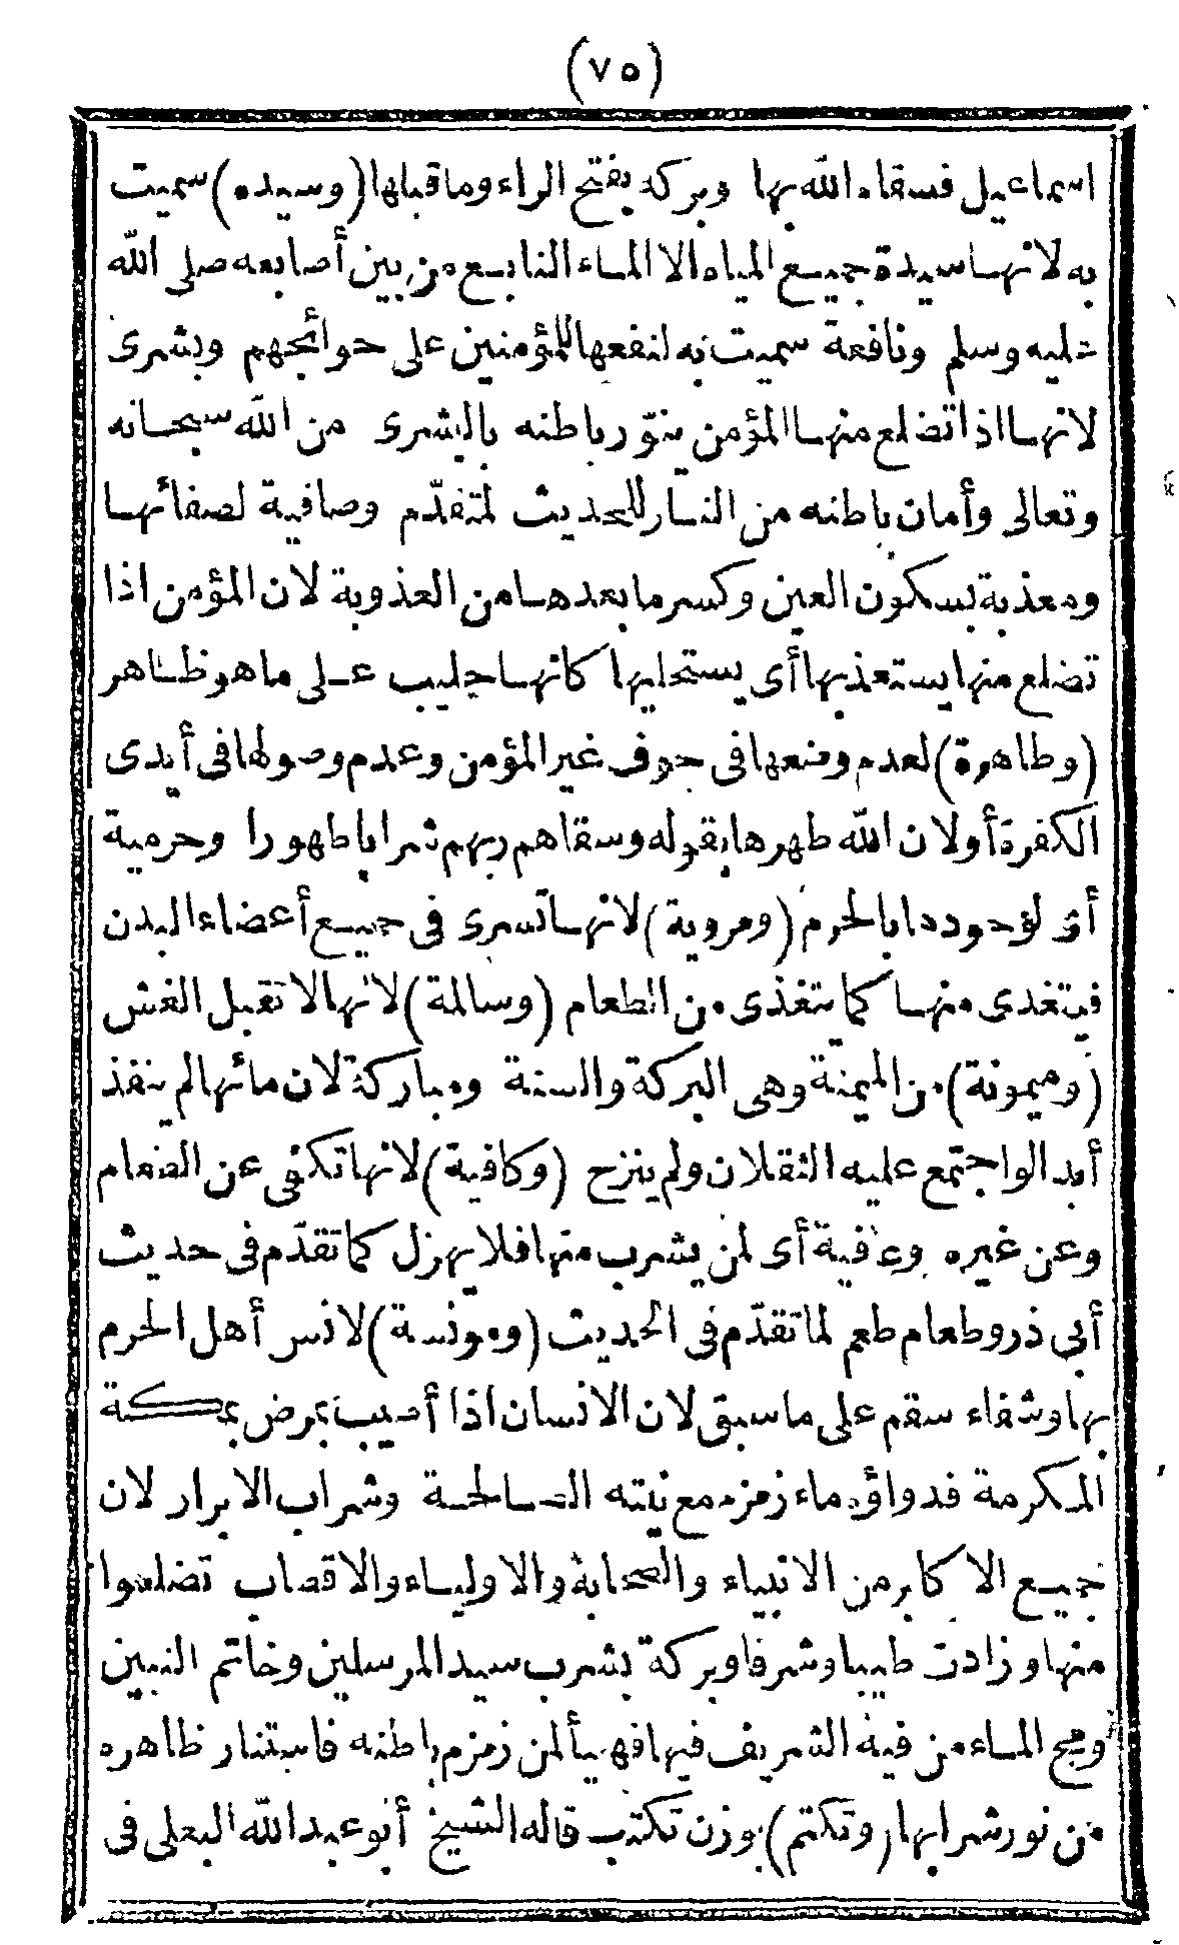 (٧٥)
اسماعيل فسقاه الله بها وبركة بفتح الراء وما قبلها (وسيده) سميت
به لانها سيدة جميع المياه الا الماء النابع من بين أصابعه صلى الله
عليه وسلم ونافعة سميت به لنفعها للمؤمنين على حوائجهم وبشرى
لانها اذا تضلع منها المؤمن ينوّر باطنه بالبشرى من الله سبحانه
وتعالى وأمان باطنه من النار للحديث لمتقدّم وصافية لصفائها
ومعذبة بسكون العين وكسر ما بعدها من العذوبة لان المؤمن اذا
تضلع منها يستعذبها أى يستحليها كانها حليب على ما هو ظاهر
(وطاهرة) لعدم وضعها فى جوف غير المؤمن وعدم وصولها فى أيدى
الكفرة أولان الله طهرها بقوله وسقاهم ربهم شرابا طهورا وحرمية
أى لوجودها بالحرم (ومروية) لانها تسرى فى جميع أعضاء البدن
فيتغدى منها كما يتغذى من الطعام (وسالمة) لانها لا تقبل الغش
(وميمونة) من الميمنة وهى البركة والسنة ومباركة لان مائها لم ينفذ
أبد الواجتمع عليه الثقلان ولم ينزح (وكافية) لانها تكفى عن الطعام
وعن غيره وعافية أى لمن يشرب منها فلا يهزل كما تقدّم فى حديث
أبى ذر وطعام طعم لما تقدّم فى الحديث (ومونسة) لانس أهل الحرم
بها وشفاء سقم على ما سبق لان الانسان اذا أصيب بمرض بمكة
المكرمة فدواؤه ماء زمزم مع نيته الصالحة وشراب الابرار لان
جميع الاكابر من الانبياء والصحابة والاولياء والاقطاب تضلعوا
منها وزادت طيبا وشرفا وبركة بشرب سيد المرسلين وخاتم النبيين
ومج الماء من فيه الشريف فيها فهنيأ لمن زمزم باطنه فاستنار ظاهره
من نور شرابها (وتكتم) بوزن تكتب قاله الشيخ أبو عبد الله البعلى فى